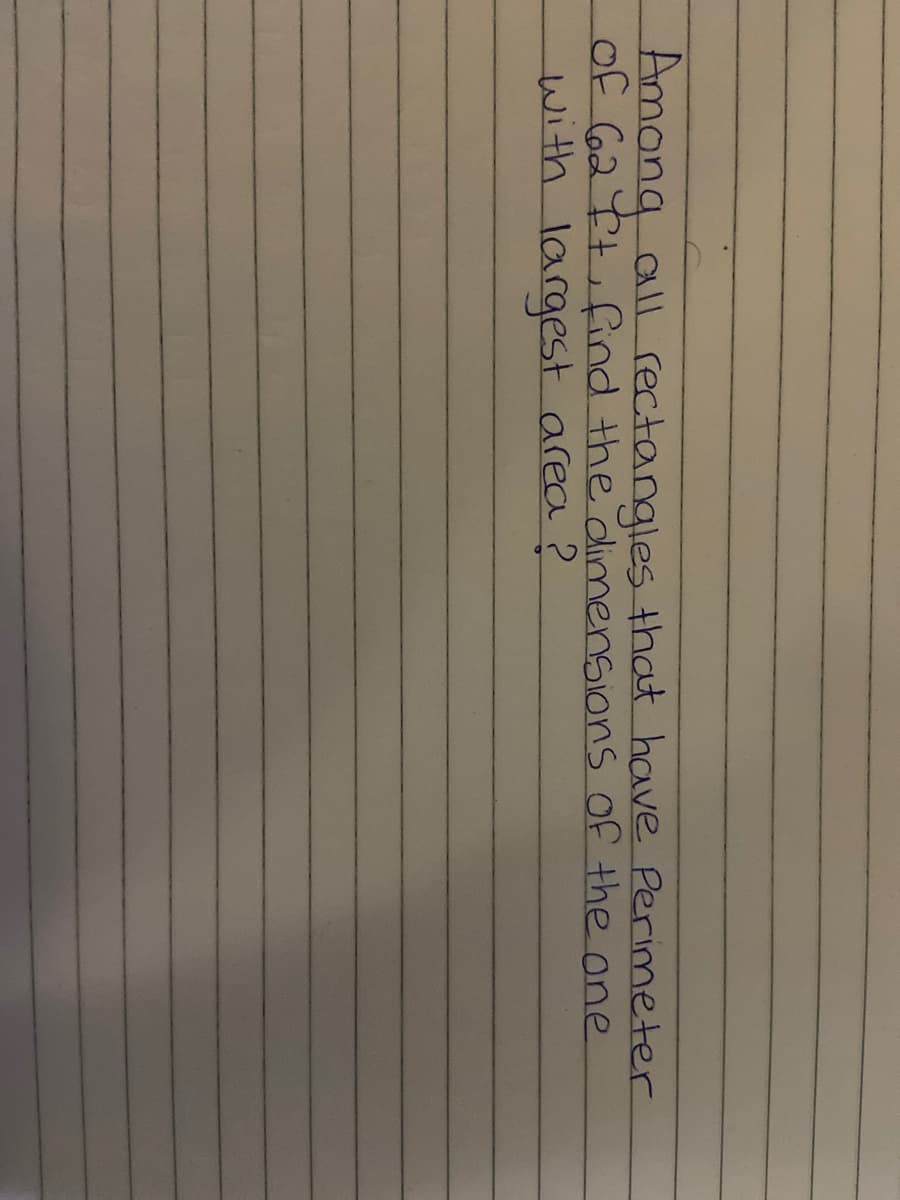 Among all rectangles that have Perimeter
of 62 ft, find the dimensions of the one
with largest area?